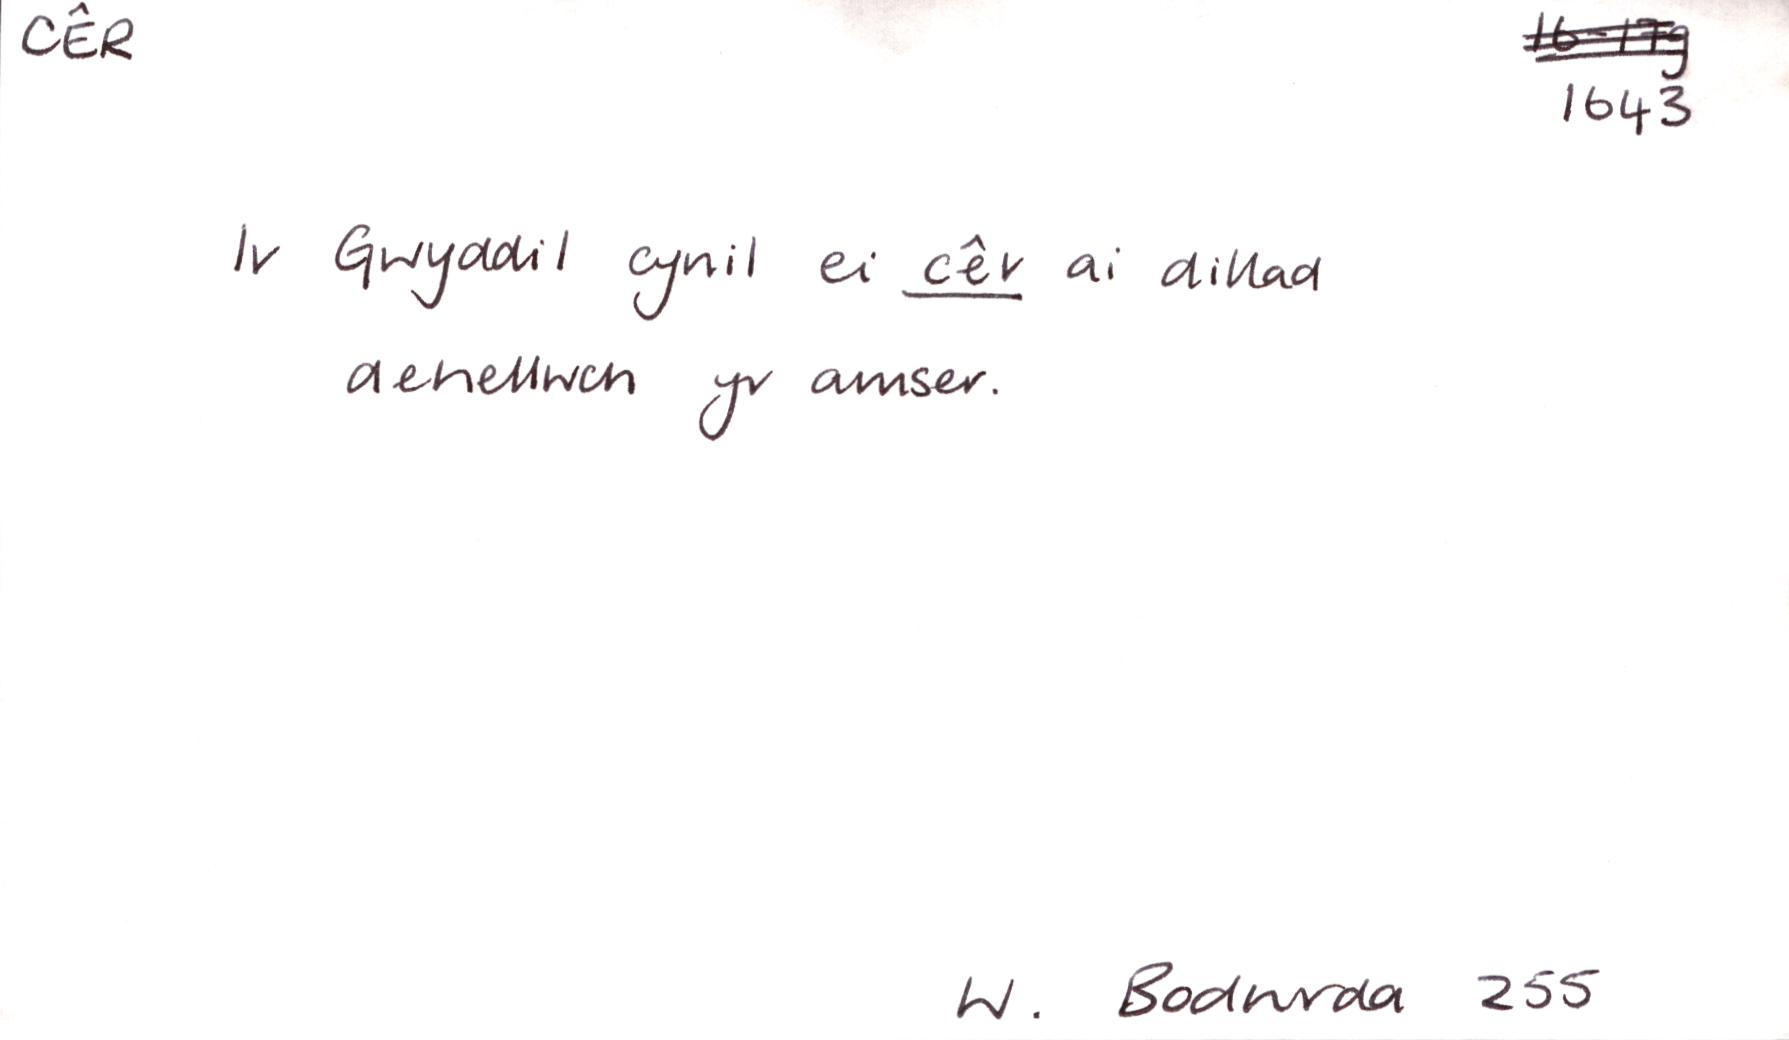 CÊR
16-17g
1643
Ir Gwyddil cynil ei cêr ai dillad
dehellwch yr amser.
W. Bodwrda 255